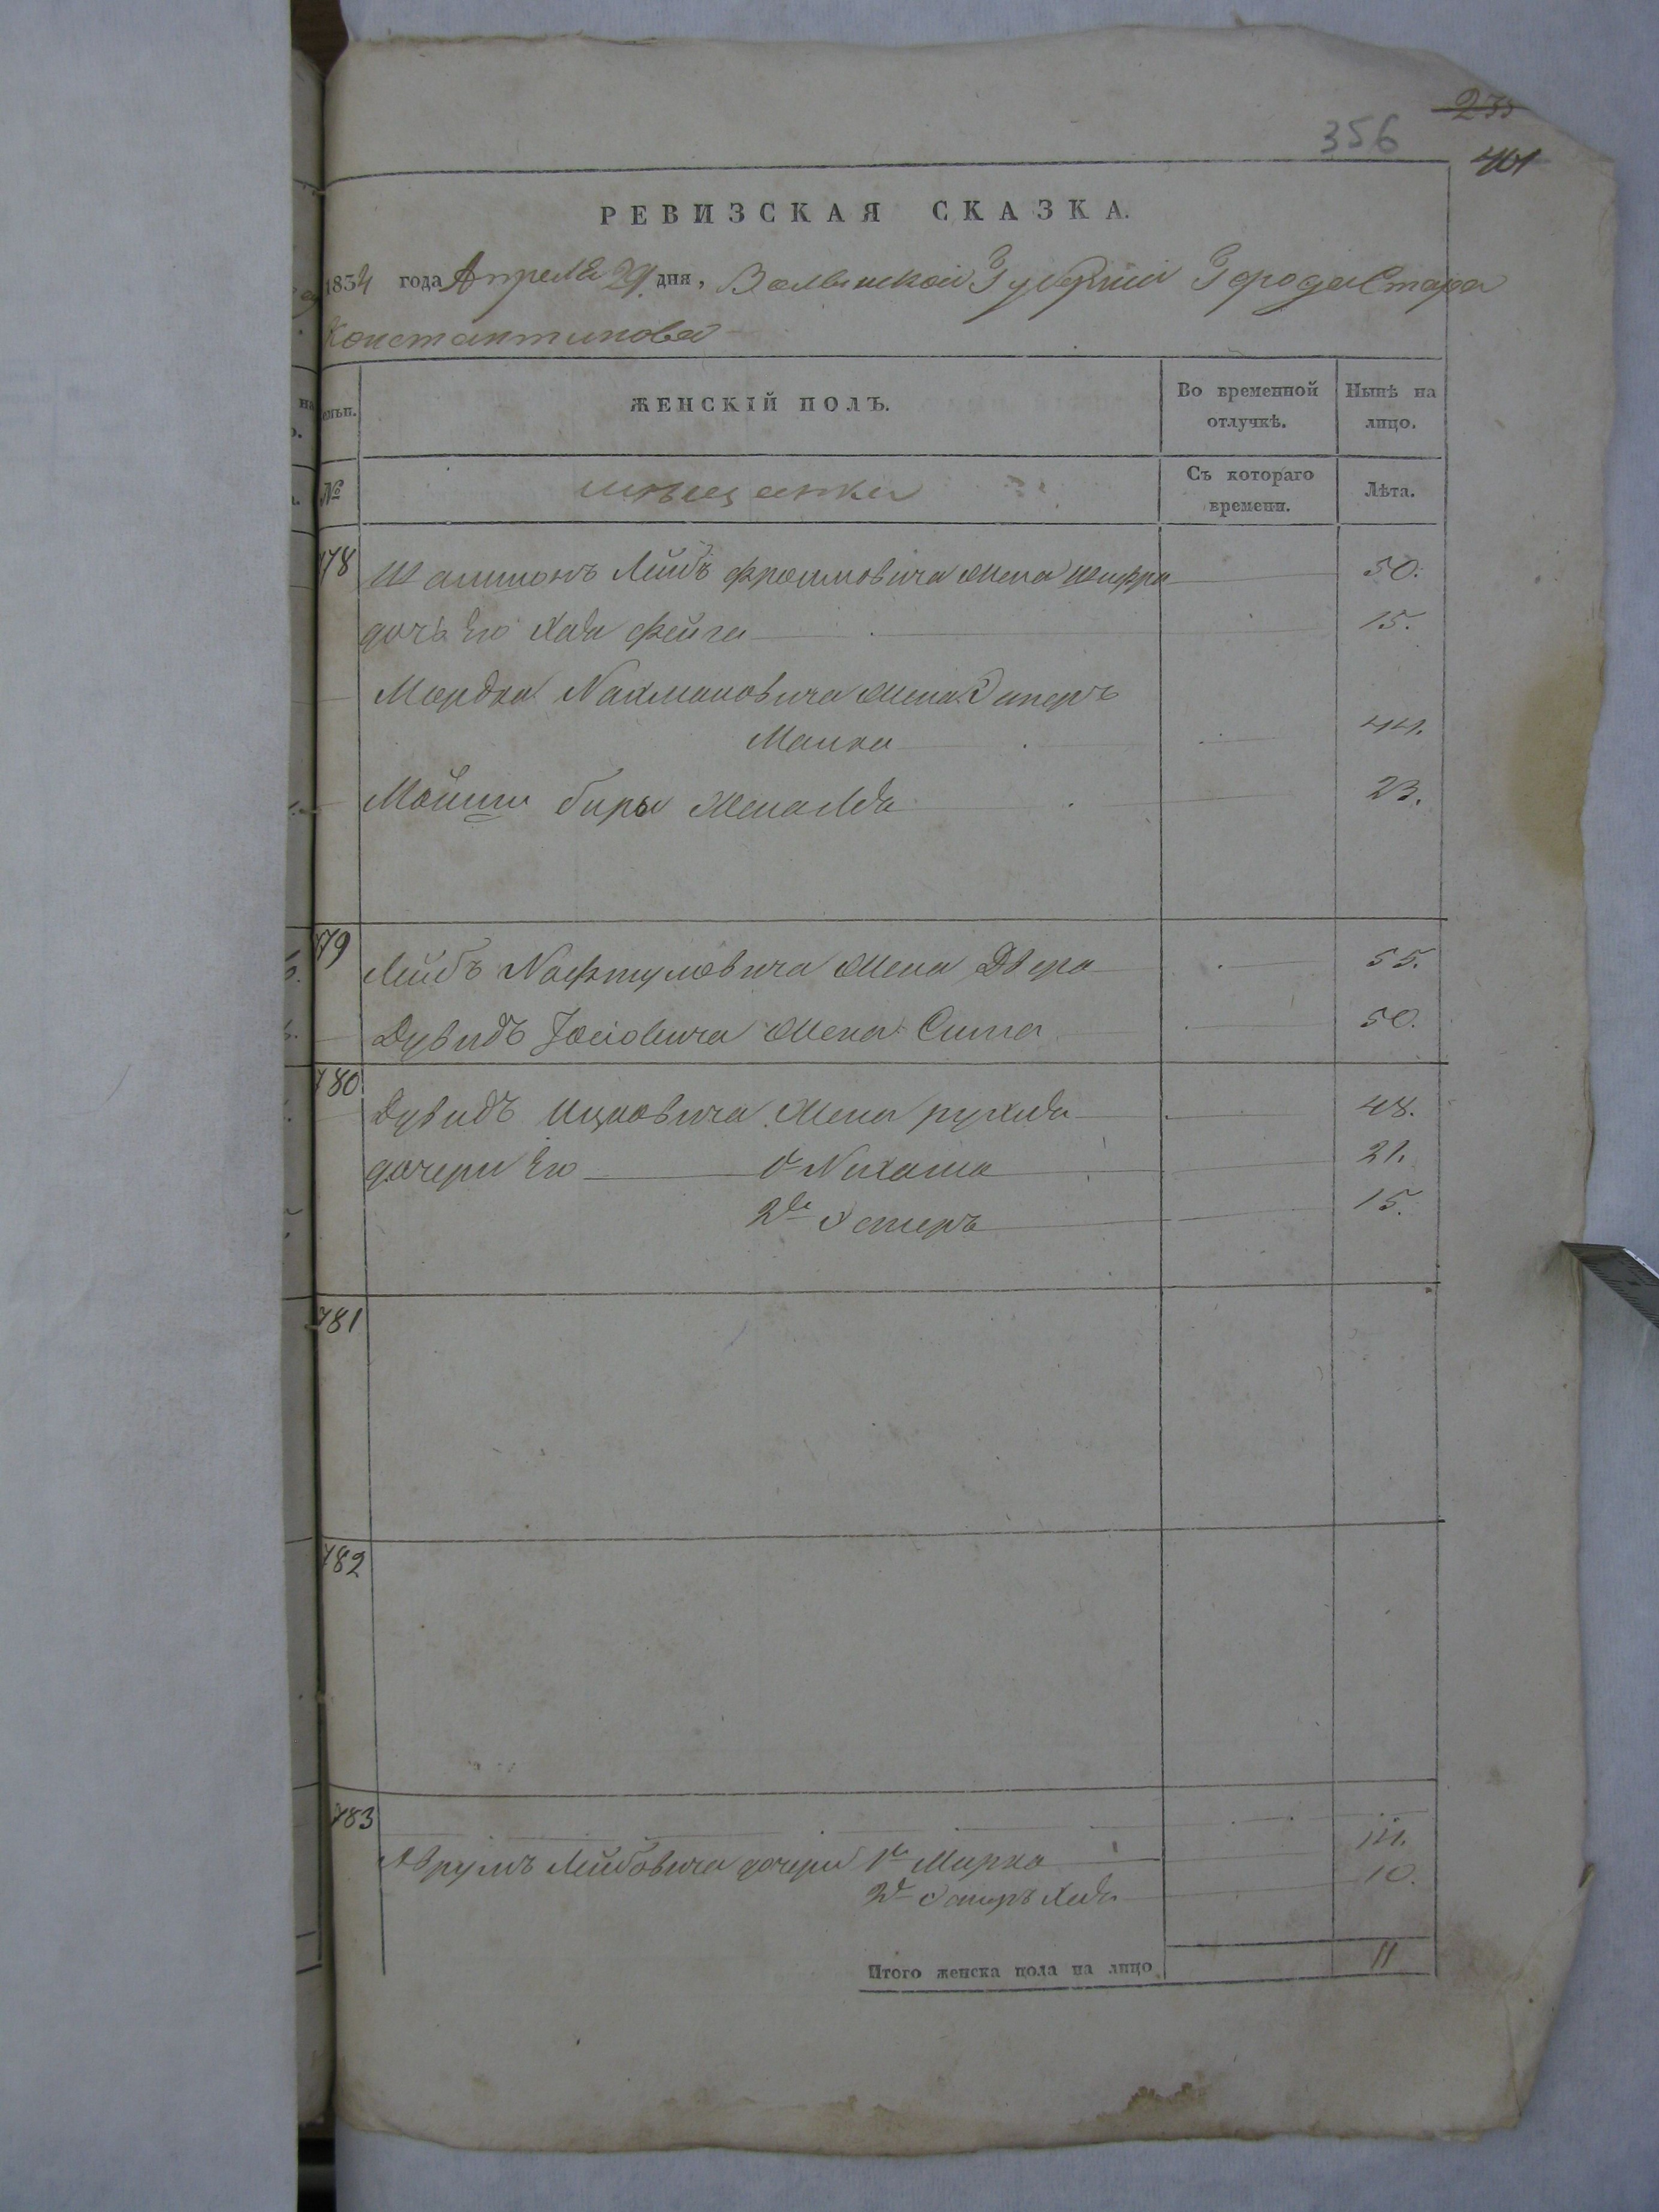 235
356
401
РЕВИЗСКАЯ СКАЗКА.
1834 года Апреля 29 дня, Волынской Губерніи Города Старо
Константинова
ЖЕНСКІЙ ПОЛЪ.
Во временной отлучкѣ.
Нынѣ на лицо.
№
мѣщанки
Съ котораго времени.
Лѣта.
178 Лейбъ Фроимовича жена Шифра 50.
дочь Его Хая Фейга 15.
Мордка Нахмановича жена Эстеръ
Малка 44.
Мойши жена 23.
179 Лейбъ Нафтуловича жена Двера 55.
Дувидъ Іосіовича жена Сима 50.
180 Дувидъ Ицковича жена рухля 48.
дочери Его 21.
2я Эстеръ 15.
781
782
783
Аврумъ Лейбовича дочери 1я Мирка 14.
2я Эстеръ Хая 10.
Итого женска пола на лицо 11